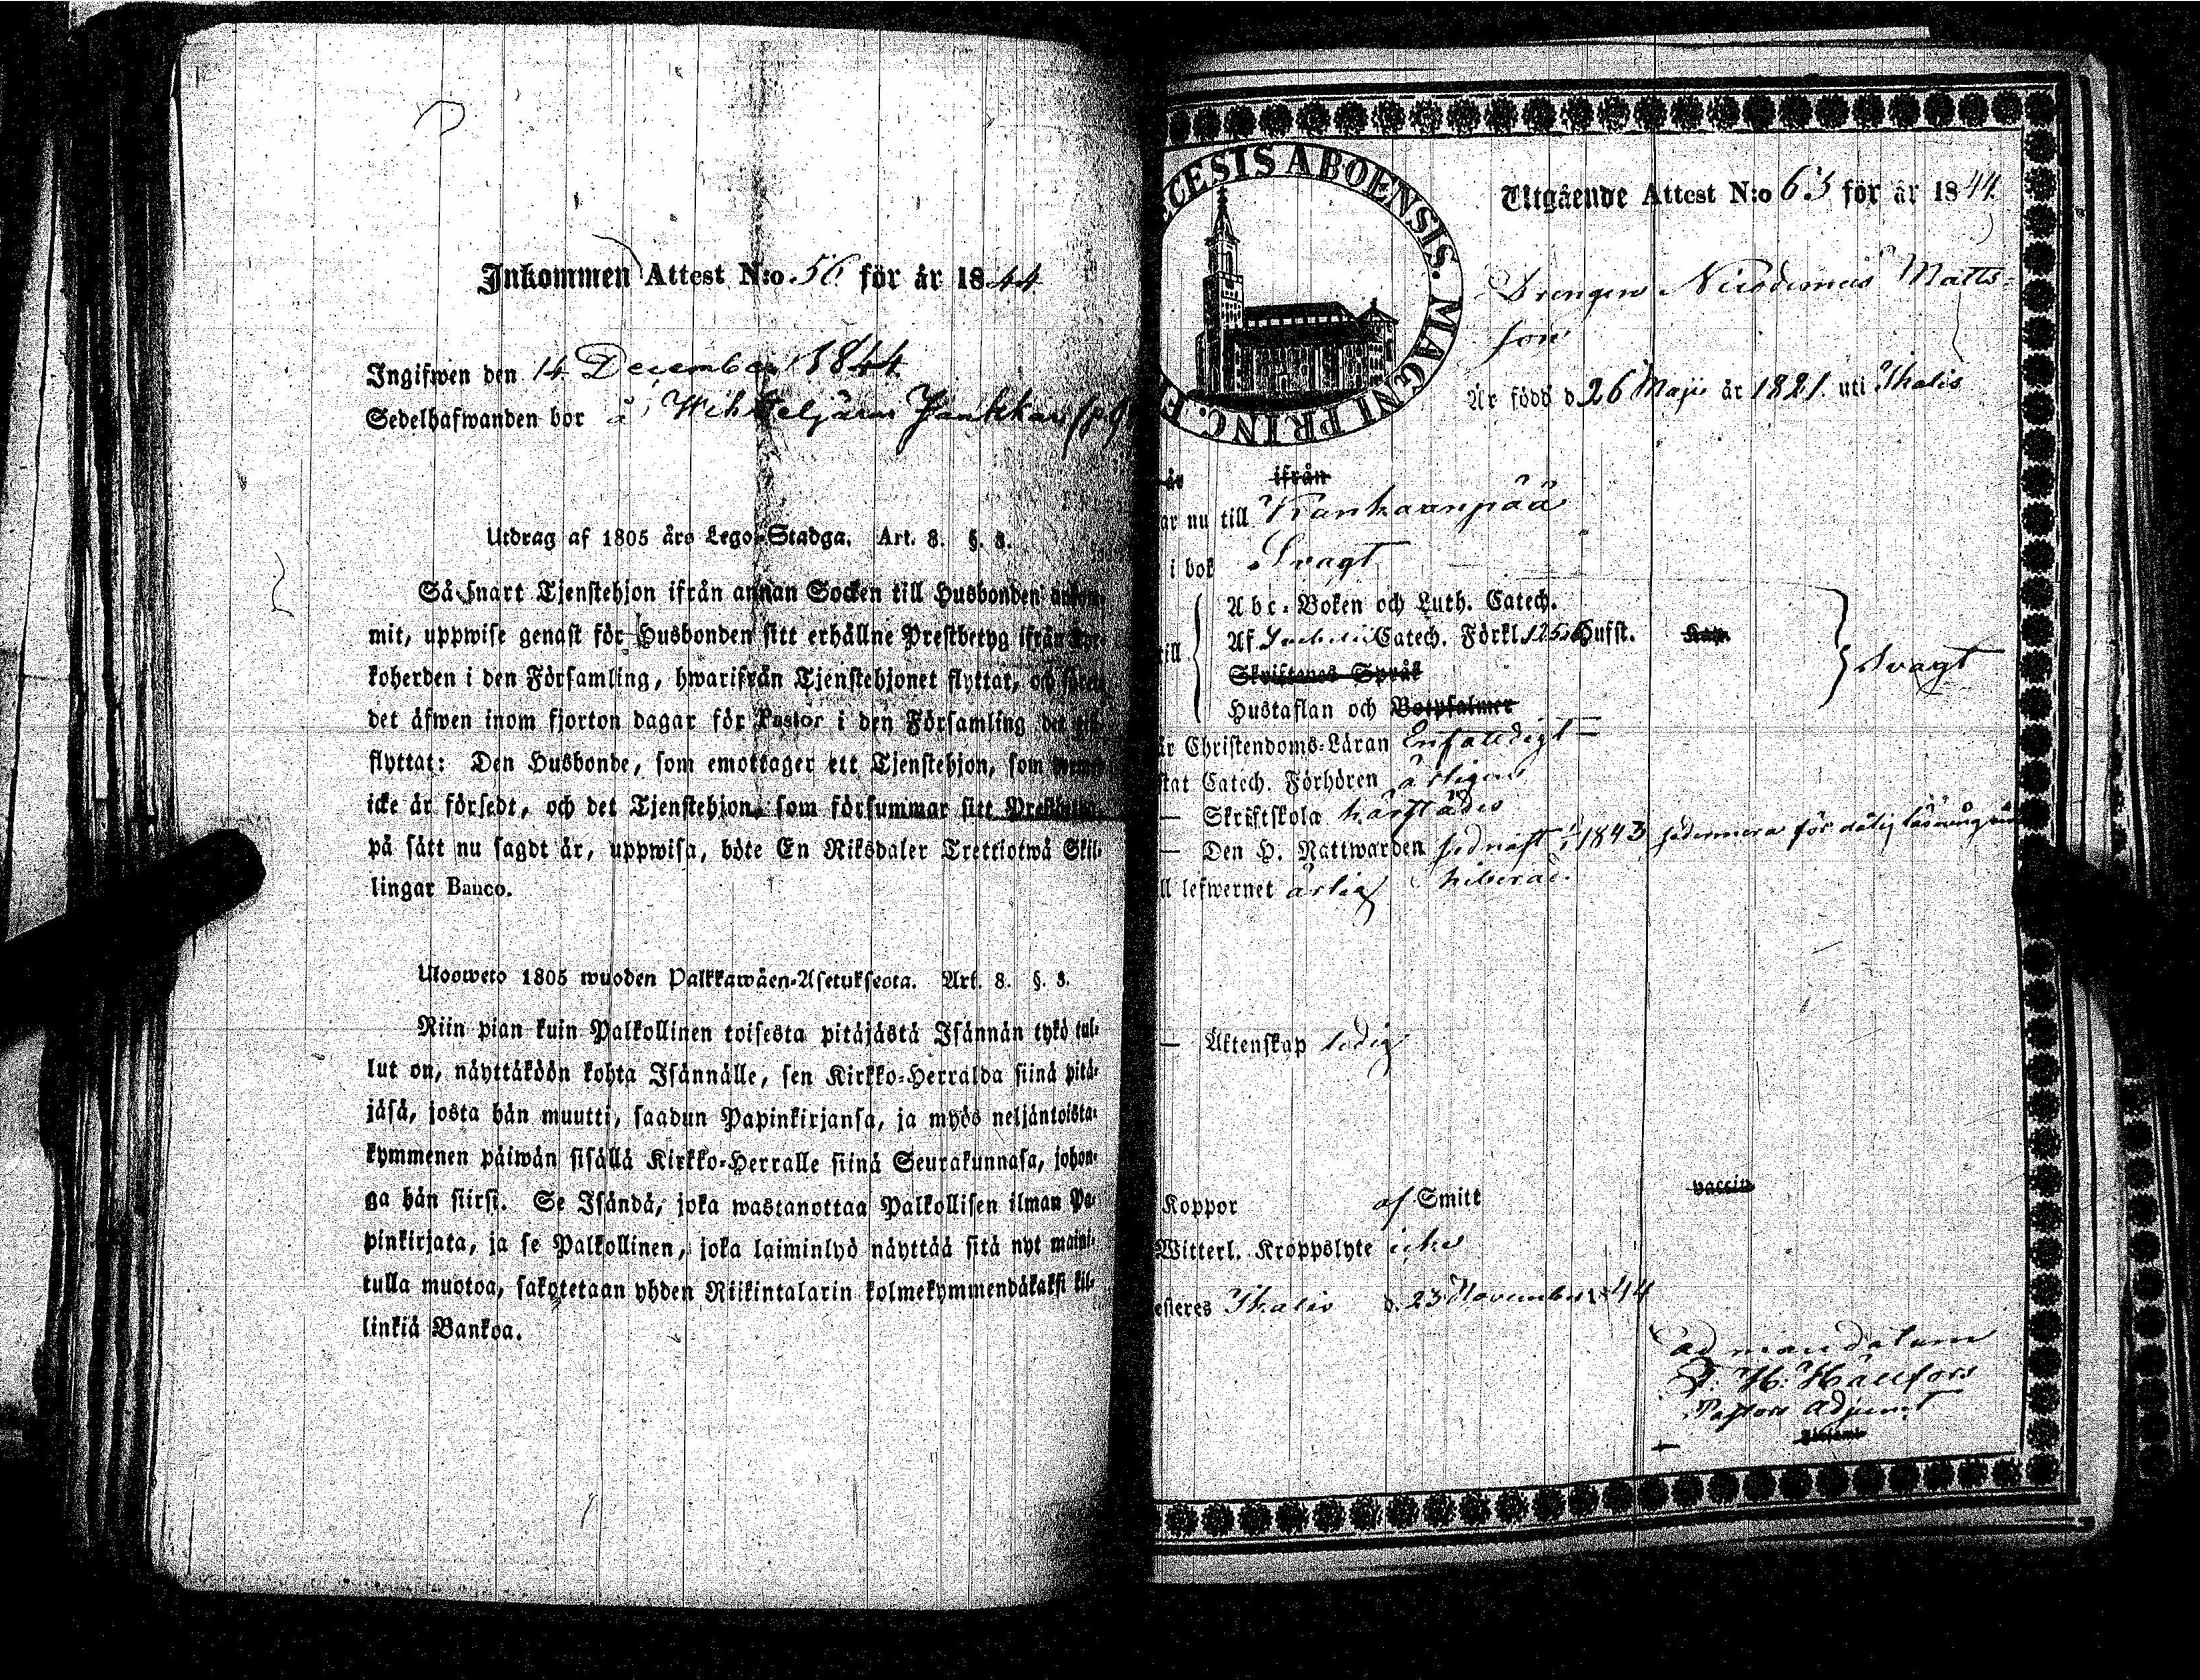 Inkommen Attest N:o 56 för år 1844
Ingifwen den 14 December 1844
Sedelhafwanden bor å Wihteljärwi Jankkari
Utdrag af 1805 års Lego-Stadga. Art. 8. §. 3.
Så snart Tjenstehjon ifrån annan Socken till Husbonden ankom-
mit, uppwise genast för Husbonden sitt erhållne Prestbetyg ifrån Kyr-
koherden i den Församling, hwarifrån Tjenstehjonet flyttat, och
det äfwen inom fjorton dagar för Pastor i den Församling det
flyttat: Den Husbonde, som emottager ett Tjenstehjon, som
icke är försedt, och det Tjenstehjon, som försummar sitt Prestbetyg,
på sätt nu sagdt är, uppwisa, böte En Riksdaler Trettiotwå Skil-
lingar Banco.
Ulosweto 1805 wuoden Palkkawäen-Asetuksesta. Art. 8. §. 3.
Niin pian kuin Palkollinen toisesta pitäjästä Isännän tykö tul-
lut on, näyttäköön kohta Isännälle, sen Kirkko-Herralda siinä pitä-
jäsä, josta hän muutti, saadun Papinkirjansa, ja myös neljäntoista-
kymmenen päiwän sisällä Kirkko-Herralle siinä Seurakunnasa, johon-
ga hän siirsi. Se Isändä, joka wastanottaa Palkollisen ilman Pa-
pinkirjata, ja se Palkollinen, joka laiminlyö näyttää sitä nyt maini-
tulla muotoa, sakotetaan yhden Riikintalarin kolmekymmendäkaksi kil-
linkiä Bankoa.
CESIS ABOENSIS. MAGNI PRINC. F
Utgående Attest N:o 63 för år 1844
Drengen Nicodemus Matts-
son
Är född d. 26 Maji år 1821. uti Ikalis
år ifrån
ar nu till Kankaanpää
i bok Svagt
Abc-Boken och Luth. Catech.
till Af Catech. Förkl. Hufst. Kap. Svagt
Skriftenes Språk
Hustaflan och Botpsalmer
är Christendoms-Läran Enfalldigt
stat Catech. Förhören årligen
— Skriftskola härstädes
— Den H. Nattwarden sednast 1843, sedermera för dålig läsning
ll lefwernet ärlig
— Äktenskap ledig
Koppor af Smitt vaccin
Witterl. Kroppslyte icke
esteres Ikalis d. 23 November 1844
ad mandatum
H: Hällfors
Pastors Adjunct